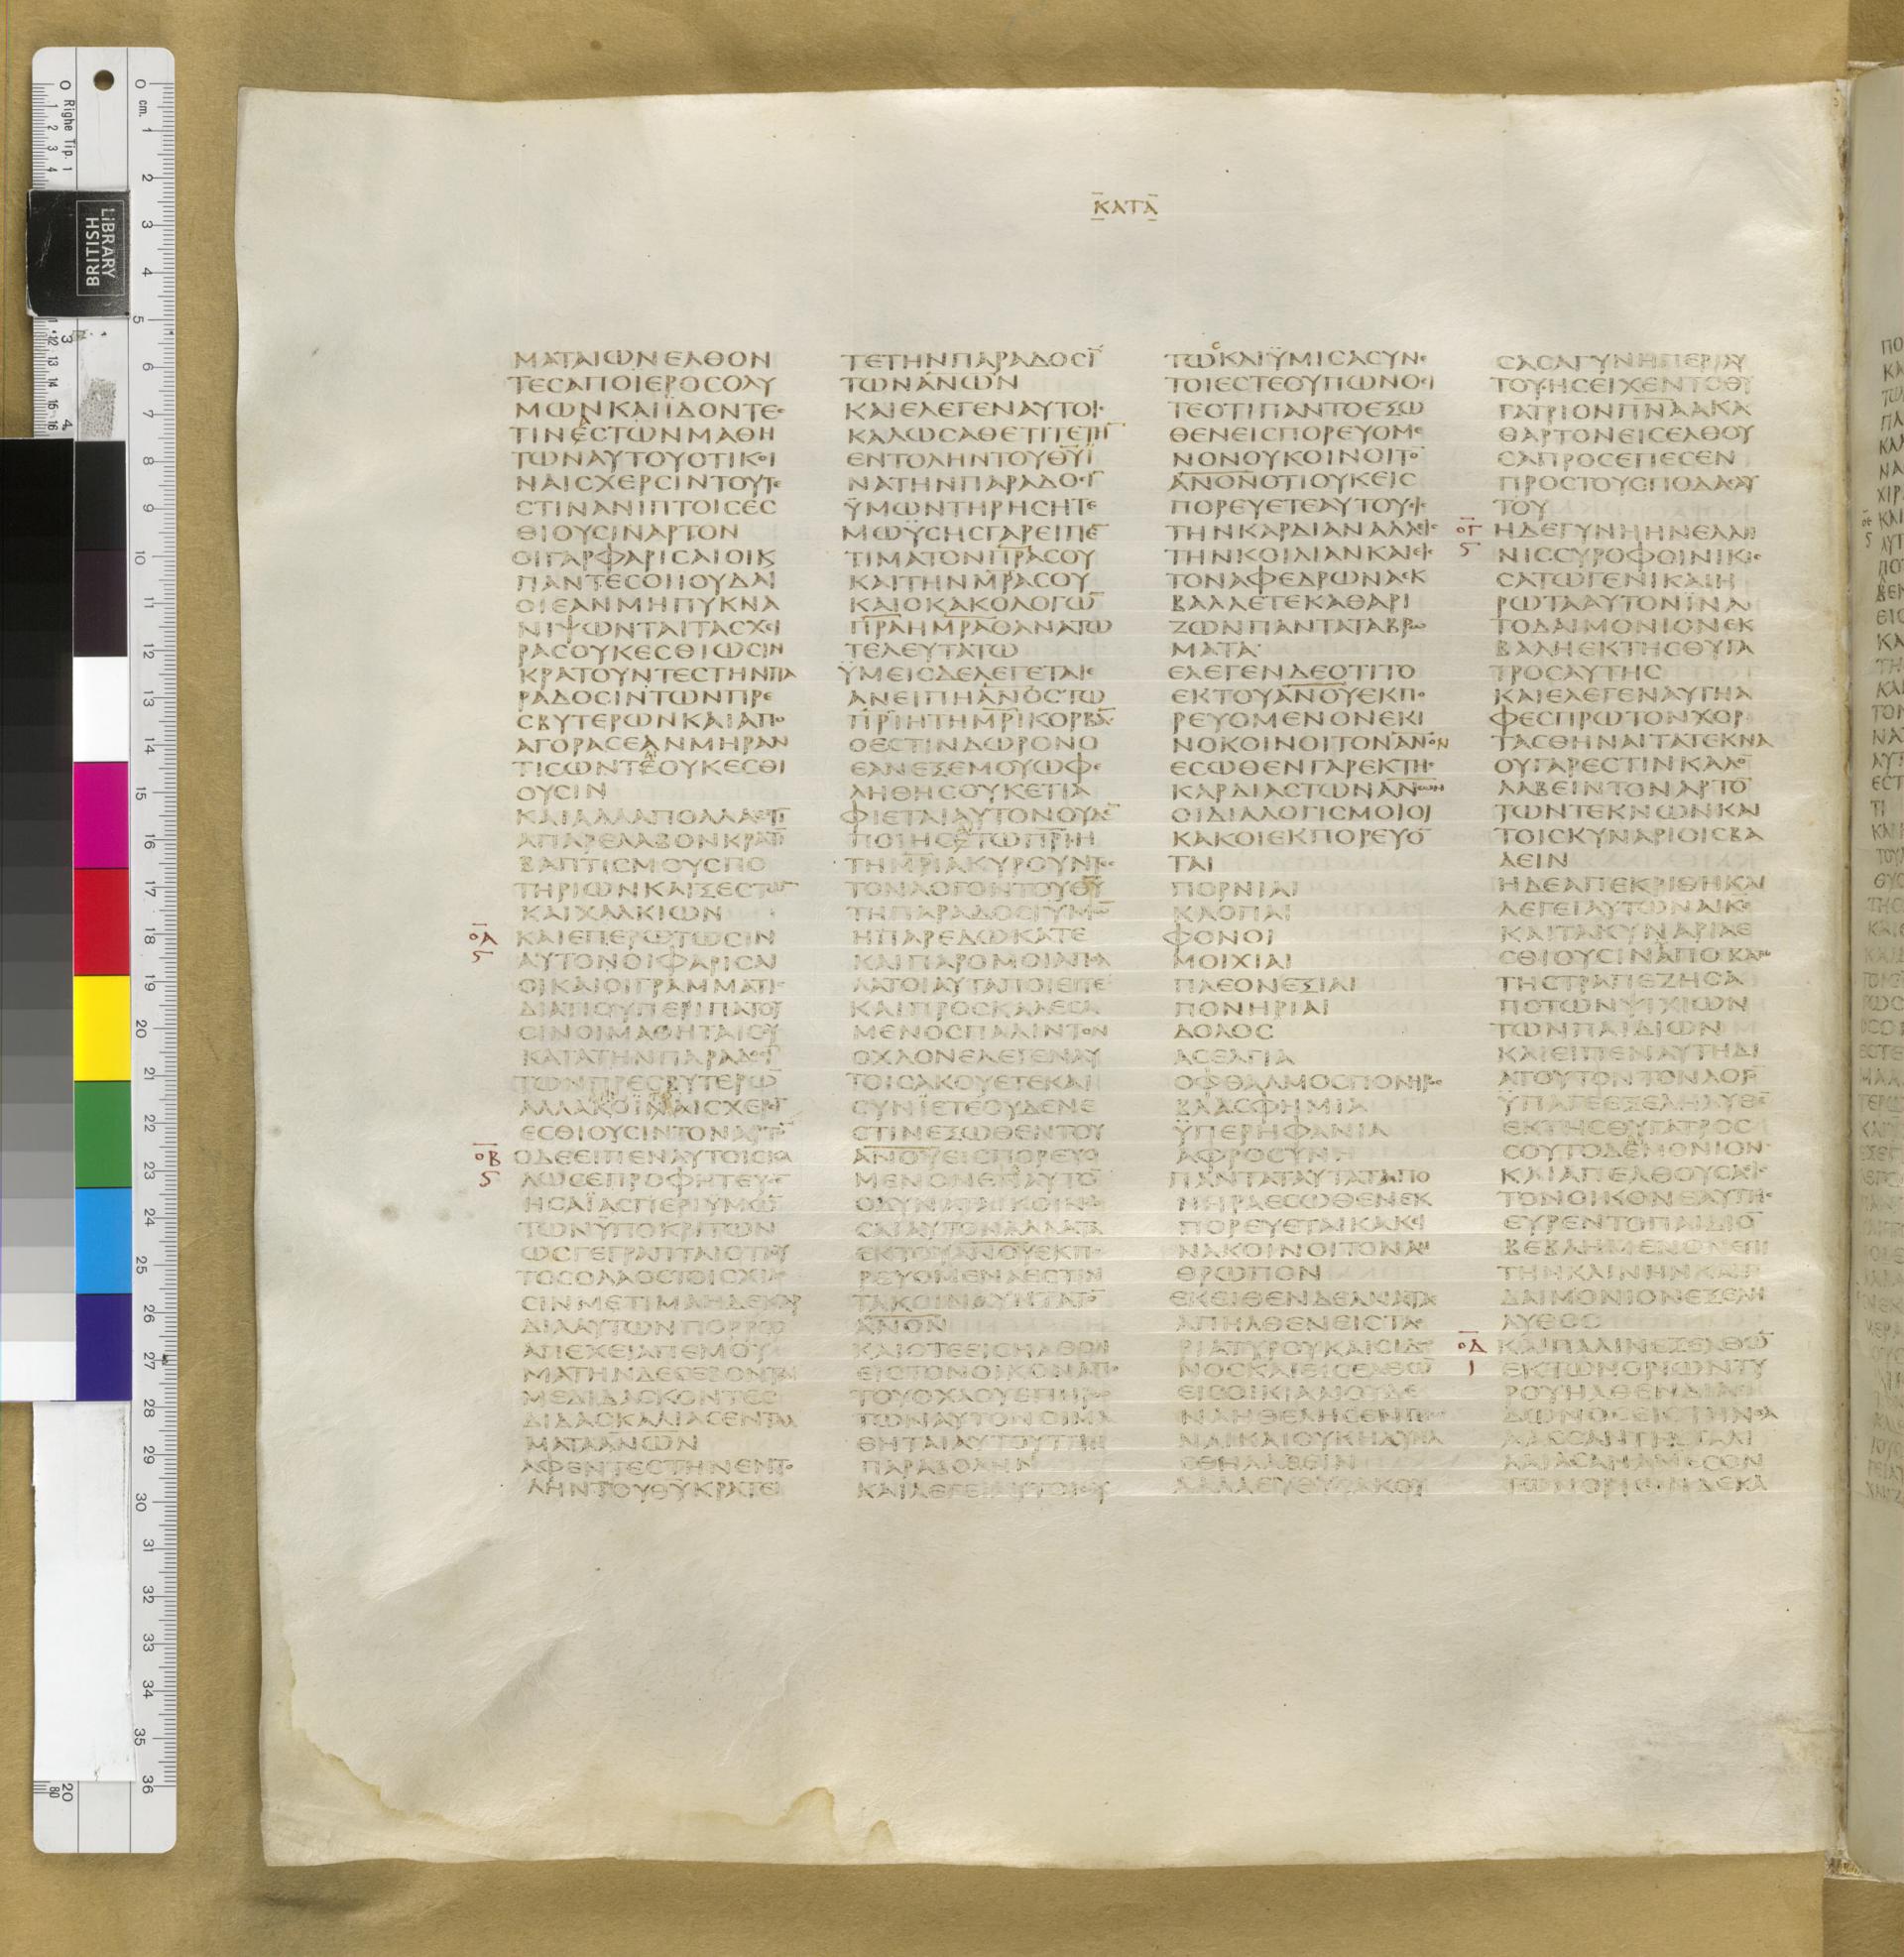 ΚΑΤΑ
ΜΑΤΑΙΩΝΕΛΘΟΝ
ΤΕCΑΠΟΪΕΡΟCΟΛΥ
ΜΩΝΚΑΙΪΔΟΝΤΕC
ΤΙΝΕCΤΩΝΜΑΘΗ
ΤΩΝΑΥΤΟΥΟΤΙΚΟΙ
ΝΑΙCΧΕΡCΙΝΤΟΥΤΕ
CΤΙΝΑΝΙΠΤΟΙCΕC
ΘΙΟΥCΙΝΑΡΤΟΝ
ΟΙΓΑΡΦΑΡΙCΑΙΟΙΚ
ΠΑΝΤΕCΟΙΙΟΥΔΑΙ
ΟΙΕΑΝΜΗΠΥΚΝΑ
ΝΙΨΩΝΤΑΙΤΑCΧΕΙ
ΡΑCΟΥΚΕCΘΙΩCΙΝ
ΚΡΑΤΟΥΝΤΕCΤΗΝΠΑ
ΡΑΔΟCΙΝΤΩΝΠΡΕ
CΒΥΤΕΡΩΝΚΑΙΑΠΟ
ΑΓΟΡΑCΕΑΝΜΗΡΑΝ
ΤΙCΩΝΤΕΟΥΚΕCΘΙ
ΟΥCΙΝ
ΚΑΙΑΛΛΑΠΟΛΛΑΕCΤΙ
ΑΠΑΡΕΛΑΒΟΝΚΡΑΤΙ
ΒΑΠΤΙCΜΟΥCΠΟ
ΤΗΡΙΩΝΚΑΙΞΕCΤΩ
ΚΑΙΧΑΛΚΙΩΝ
ΟΑ
Ϛ
ΚΑΙΕΠΕΡΩΤΩCΙΝ
ΑΥΤΟΝΟΙΦΑΡΙCΑΙ
ΟΙΚΑΙΟΙΓΡΑΜΜΑΤΙC
ΔΙΑΤΙΟΥΠΕΡΙΠΑΤΟΥ
CΙΝΟΙΜΑΘΗΤΑΙCΟΥ
ΚΑΤΑΤΗΝΠΑΡΑΔΟCΙ
ΤΩΝΠΡΕCΒΥΤΕΡΩ
ΑΛΛΑΚΟΙΝΑΙCΧΕΡCΙ
ΕCΘΙΟΥCΙΝΤΟΝΑΡΤΟ
ΟΒ
Ϛ
ΟΔΕΕΙΠΕΝΑΥΤΟΙCΚΑ
ΛΩCΕΠΡΟΦΗΤΕΥCΕ
ΗCΑΪΑCΠΕΡΙΫΜΩ
ΤΩΝΫΠΟΚΡΙΤΩΝ
ΩCΓΕΓΡΑΠΤΑΙΟΤΙΟΥ
ΤΟCΟΛΑΟCΤΟΙCΧΙΛΕ
CΙΝΜΕΤΙΜΑΗΔΕΚΑΡ
ΔΙΑΑΥΤΩΝΠΟΡΡΩ
ΑΠΕΧΕΙΑΠΕΜΟΥ
ΜΑΤΗΝΔΕCΕΒΟΝΤΑΙ
ΜΕΔΙΔΑCΚΟΝΤΕC
ΔΙΔΑCΚΑΛΙΑCΕΝΤΑΛ
ΜΑΤΑΑΝΩΝ
ΑΦΕΝΤΕCΤΗΝΕΝΤΟ
ΛΗΝΤΟΥΘΥΚΡΑΤΕΙ
ΤΕΤΗΝΠΑΡΑΔΟCΙ
ΤΩΝΑΝΩΝ
ΚΑΙΕΛΕΓΕΝΑΥΤΟΙC
ΚΑΛΩCΑΘΕΤΙΤΕΤΗ
ΕΝΤΟΛΗΝΤΟΥΘΥΪ
ΝΑΤΗΝΠΑΡΑΔΟCΙ
ΫΜΩΝΤΗΡΗCΗΤΕ
ΜΩΫCΗCΓΑΡΕΙΠΕ
ΤΙΜΑΤΟΝΠΡΑCΟΥ
ΚΑΙΤΗΝΜΡΑCΟΥ
ΚΑΙΟΚΑΚΟΛΟΓΩ
ΠΡΑΗΜΡΑΘΑΝΑΤΩ
ΤΕΛΕΥΤΑΤΩ
ΫΜΕΙCΔΕΛΕΓΕΤΑΙΕ
ΑΝΕΙΠΗΑΝΟCΤΩ
ΠΡΙΗΤΗΜΡΙΚΟΡΒΑ
ΟΕCΤΙΝΔΩΡΟΝΟ
ΕΑΝΕΞΕΜΟΥΩΦΕ
ΛΗΘΗCΟΥΚΕΤΙΑ
ΦΙΕΤΑΙΑΥΤΟΝΟΥΔΕ
ΠΟΙΗCΕΤΩΠΡΙΗ
ΤΗΜΡΙΑΚΥΡΟΥΝΤΕC
ΤΟΝΛΟΓΟΝΤΟΥΘΥ
ΤΗΠΑΡΑΔΟCΙΥΜΩ
ΗΠΑΡΕΔΩΚΑΤΕ
ΚΑΙΠΑΡΟΜΟΙΑΠΟΛ
ΛΑΤΟΙΑΥΤΑΠΟΙΕΙΤΕ
ΚΑΙΠΡΟCΚΑΛΕCΑ
ΜΕΝΟCΠΑΛΙΝΤΟΝ
ΟΧΛΟΝΕΛΕΓΕΝΑΥ
ΤΟΙCΑΚΟΥΕΤΕΚΑΙ
CΥΝΪΕΤΕΟΥΔΕΝΕ
CΤΙΝΕΞΩΘΕΝΤΟΥ
ΑΝΟΥΕΙCΠΟΡΕΥΟ
ΜΕΝΟΝΕΙCΑΥΤΟ
ΟΔΥΝΑΤΑΙΚΟΙΝΩ
CΑΙΑΥΤΟΝΑΛΛΑΤΑ
ΕΚΤΟΥΑΝΟΥΕΚΠΟ
ΡΕΥΟΜΕΝΑΕCΤΙΝ
ΤΑΚΟΙΝΟΥΝΤΑΤΟ
ΑΝΟΝ
ΚΑΙΟΤΕΕΙCΗΛΘΟΝ
ΕΙCΤΟΝΟΙΚΟΝΑΠΟ
ΤΟΥΟΧΛΟΥΕΠΗΡΩ
ΤΩΝΑΥΤΟΝΟΙΜΑ
ΘΗΤΑΙΑΥΤΟΥΤΗΝ
ΠΑΡΑΒΟΛΗΝ
ΚΑΙΛΕΓΕΙΑΥΤΟΙCΟΥ
ΤΩΚΑΙΫΜΙCΑCΥΝΕ
ΤΟΙΕCΤΕΟΥΠΩΝΟΕΙ
ΤΕΟΤΙΠΑΝΤΟΕΞΩ
ΘΕΝΕΙCΠΟΡΕΥΟΜΕ
ΝΟΝΟΥΚΟΙΝΟΙΤΟ
ΑΝΟΝΟΤΙΟΥΚΕΙC
ΠΟΡΕΥΕΤΕΑΥΤΟΥΕΙC
ΤΗΝΚΑΡΔΙΑΝΑΛΛΕΙC
ΤΗΝΚΟΙΛΙΑΝΚΑΙΕΙC
ΤΟΝΑΦΕΔΡΩΝΑΕΚ
ΒΑΛΛΕΤΕΚΑΘΑΡΙ
ΖΩΝΠΑΝΤΑΤΑΒΡΩ
ΜΑΤΑ
ΕΛΕΓΕΝΔΕΟΤΙΤΟ
ΕΚΤΟΥΑΝΟΥΕΚΠΟ
ΡΕΥΟΜΕΝΟΝΕΚΙ
ΝΟΚΟΙΝΟΙΤΟΝΑΝΟΝ
ΕCΩΘΕΝΓΑΡΕΚΤΗC
ΚΑΡΔΙΑCΤΩΝΑΝΩΝ
ΟΙΔΙΑΛΟΓΙCΜΟΙΟΙ
ΚΑΚΟΙΕΚΠΟΡΕΥΟ
ΤΑΙ
ΠΟΡΝΙΑΙ
ΚΛΟΠΑΙ
ΦΟΝΟΙ
ΜΟΙΧΙΑΙ
ΠΛΕΟΝΕΞΙΑΙ
ΠΟΝΗΡΙΑΙ
ΔΟΛΟC
ΑCΕΛΓΙΑ
ΟΦΘΑΛΜΟCΠΟΝΗΡΟC
ΒΛΑCΦΗΜΙΑ
ΫΠΕΡΗΦΑΝΙΑ
ΑΦΡΟCΥΝΗ
ΠΑΝΤΑΤΑΥΤΑΤΑΠΟ
ΝΗΡΑΕCΩΘΕΝΕΚ
ΠΟΡΕΥΕΤΑΙΚΑΚΕΙ
ΝΑΚΟΙΝΟΙΤΟΝΑΝ
ΘΡΩΠΟΝ
ΕΚΕΙΘΕΝΔΕΑΝΑCΤΑC
ΑΠΗΛΘΕΝΕΙCΤΑΟ
ΡΙΑΤΥΡΟΥΚΑΙCΙΔΩ
ΝΟCΚΑΙΕΙCΕΛΘΩ
ΕΙCΟΙΚΙΑΝΟΥΔΕ
ΝΑΗΘΕΛΗCΕΝΓΝΩ
ΝΑΙΚΑΙΟΥΚΗΔΥΝΑ
CΘΗΛΑΘΕΙΝ
ΑΛΛΑΕΥΘΥCΑΚΟΥ
CΑCΑΓΥΝΗΠΕΡΙΑΥ
ΤΟΥΗCΕΙΧΕΝΤΟΘΥ
ΓΑΤΡΙΟΝΠΝΑΑΚΑ
ΘΑΡΤΟΝΕΙCΕΛΘΟΥ
CΑΠΡΟCΕΠΕCΕΝ
ΠΡΟCΤΟΥCΠΟΔΑCΑΥ
ΤΟΥ
ΟΓ
Ϛ
ΗΔΕΓΥΝΗΗΝΕΛΛΗ
ΝΙCCΥΡΟΦΟΙΝΙΚΙC
CΑΤΩΓΕΝΙΚΑΙΗ
ΡΩΤΑΑΥΤΟΝΪΝΑ
ΤΟΔΑΙΜΟΝΙΟΝΕΚ
ΒΑΛΗΕΚΤΗCΘΥΓΑ
ΤΡΟCΑΥΤΗC
ΚΑΙΕΛΕΓΕΝΑΥΤΗΑ
ΦΕCΠΡΩΤΟΝΧΟΡ
ΤΑCΘΗΝΑΙΤΑΤΕΚΝΑ
ΟΥΓΑΡΕCΤΙΝΚΑΛΟ
ΛΑΒΕΙΝΤΟΝΑΡΤΟ
ΤΩΝΤΕΚΝΩΝΚΑΙ
ΤΟΙCΚΥΝΑΡΙΟΙCΒΑ
ΛΕΙΝ
ΗΔΕΑΠΕΚΡΙΘΗΚΑΙ
ΛΕΓΕΙΑΥΤΩΝΑΙΚΕ
ΚΑΙΤΑΚΥΝΑΡΙΑΕ
CΘΙΟΥCΙΝΑΠΟΚΑΤΩ
ΤΗCΤΡΑΠΕΖΗCΑ
ΠΟΤΩΝΨΙΧΙΩΝ
ΤΩΝΠΑΙΔΙΩΝ
ΚΑΙΕΙΠΕΝΑΥΤΗΔΙ
ΑΤΟΥΤΟΝΤΟΝΛΟΓΟ
ΫΠΑΓΕΕΞΕΛΗΛΥΘΕ
ΕΚΤΗCΘΥΓΑΤΡΟC
CΟΥΤΟΔΕΜΟΝΙΟΝ
ΚΑΙΑΠΕΛΘΟΥCΑΕΙC
ΤΟΝΟΙΚΟΝΕΑΥΤΗC
ΕΥΡΕΝΤΟΠΑΙΔΙΟ
ΒΕΒΛΗΜΕΝΟΝΕΠΙ
ΤΗΝΚΛΙΝΗΝΚΑΙΤΟ
ΔΑΙΜΟΝΙΟΝΕΞΕΛΗ
ΛΥΘΟC
ΟΔ
Ι
ΚΑΙΠΑΛΙΝΕΞΕΛΘΩ
ΕΚΤΩΝΟΡΙΩΝΤΥ
ΡΟΥΗΛΘΕΝΔΙΑCΙ
ΔΩΝΟCΕΙCΤΗΝΘΑ
ΛΑCCΑΝΤΗCΓΑΛΙ
ΛΑΙΑCΑΝΑΜΕCΟΝ
ΤΩΝΟΡΙΩΝΔΕΚΑ
BRITISH
LIBRARY